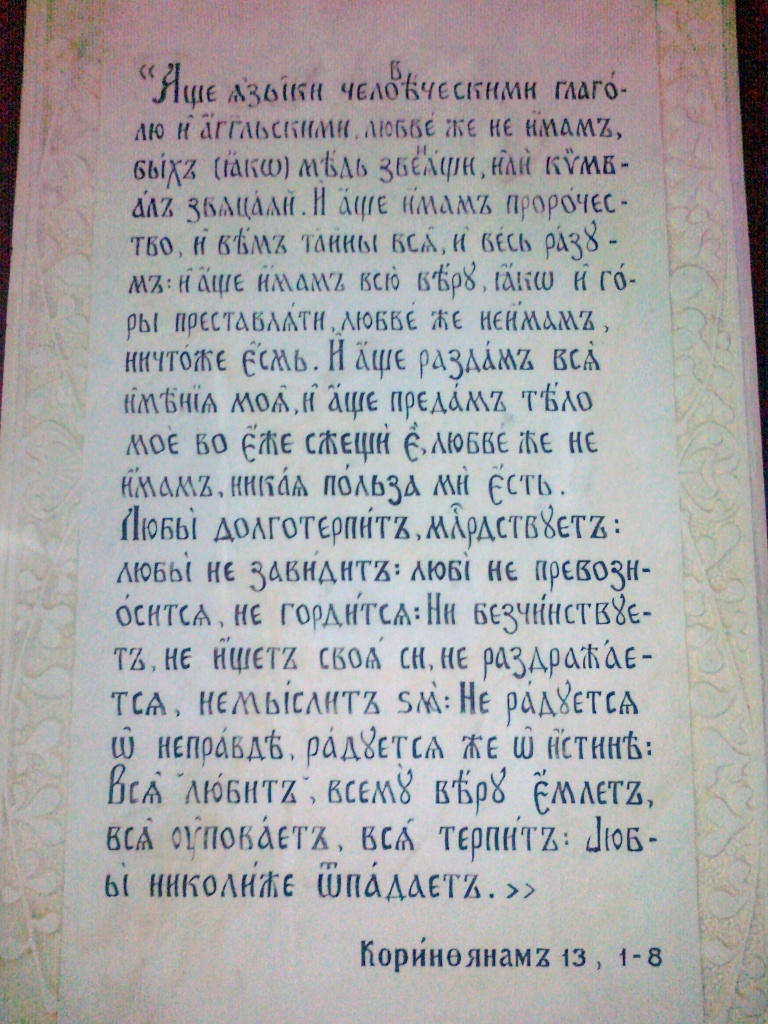 “Аще ѧ҆зы́ки человѣ́ческими глаго́-
лю и҆ а҆́ггльскими, любве́ же не и҆́мамъ,
бы́хъ (ꙗ҆́кѡ) мѣ́дь звенѧ́щи, и҆лѝ кѷмв-
а́лъ звѧца́ѧй. И҆ а҆́ще и҆́мамъ проро́чес-
тво, и҆ вѣ́мъ та̑йны всѧ̑, и҆ весь ра́зꙋ-
мъ: и҆ а҆́ще и҆́мамъ всю̀ вѣ́рꙋ, ꙗ҆́кѡ и҆ го́-
ры преставлѧ́ти, любве́ же неи҆́мамъ,
ничто́же є҆́смь. И҆ а҆́ще разда́мъ всѧ̑
и҆мѣ̑нїѧ моѧ̑, и҆ а҆́ще преда́мъ тѣ́ло
моѐ во є҆́же сжещѝ є҆̀, любве́ же не
и҆́мамъ, ника́ѧ по́льза мѝ є҆́сть.
Любы̀ долготерпи́тъ, млⷭ҇рдствꙋетъ:
любы̀ не зави́дитъ: любі̀ не превозн-
о́ситсѧ, не горди́тсѧ: Ни безчи́нствꙋе-
тъ, не и҆́щетъ своѧ̑ си, не раздража́е-
тсѧ, немы́слитъ ѕла̀: Не ра́дꙋетсѧ
ѡ҆ непра́вдѣ, ра́дꙋетсѧ же ѡ҆ и҆́стинѣ:
Всѧ̑ "лю́битъ", всемꙋ̀ вѣ́рꙋ є҆́млетъ,
всѧ̑ ᲂу҆пова́етъ, всѧ̑ терпи́тъ: Люб-
ы̀ николи́же ѿпа́даетъ. >>
Кори́нѳянамъ 13, 1-8